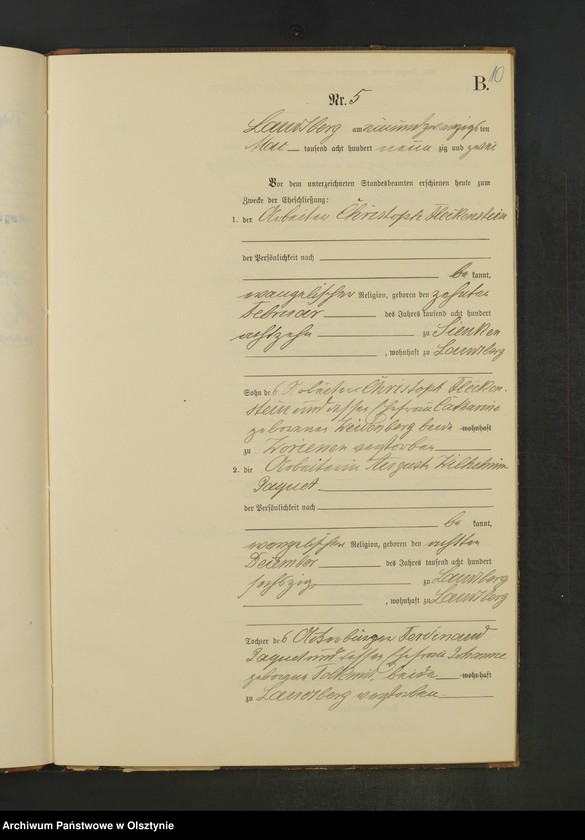 B.
10
Nr. 5
Landsberg am einundzwanzigsten
Mai tausend acht hundert neun zig und zwei
Vor dem unterzeichneten Standesbeamten erschienen heute zum
Zwecke der Eheschließung:
1. der Arbeiter Christoph Fleckenstein
der Persönlichkeit nach
be kannt,
evangelischer Religion, geboren den zehnten
Februar des Jahres tausend acht hundert
achtzehn zu Sienken
, wohnhaft zu Landsberg
Sohn des Arbeiters Christoph Flecken-
stein und dessen Ehefrau Catharine
geborenen beide wohnhaft
zu Worienen verstorben
2. die Arbeiterin August Wilhelmine
Paquet
der Persönlichkeit nach
be kannt,
evangelischer Religion, geboren den achtten
Dezember des Jahres tausend acht hundert
sechszig zu Landsberg
, wohnhaft zu Landsberg
Tochter des Ackerbürger Ferdinand
Paquet und dessen Ehefrau Johanne
geborene Tolkmit, beide wohnhaft
zu Landsberg verstorben.
Archiwum Państwowe w Olsztynie